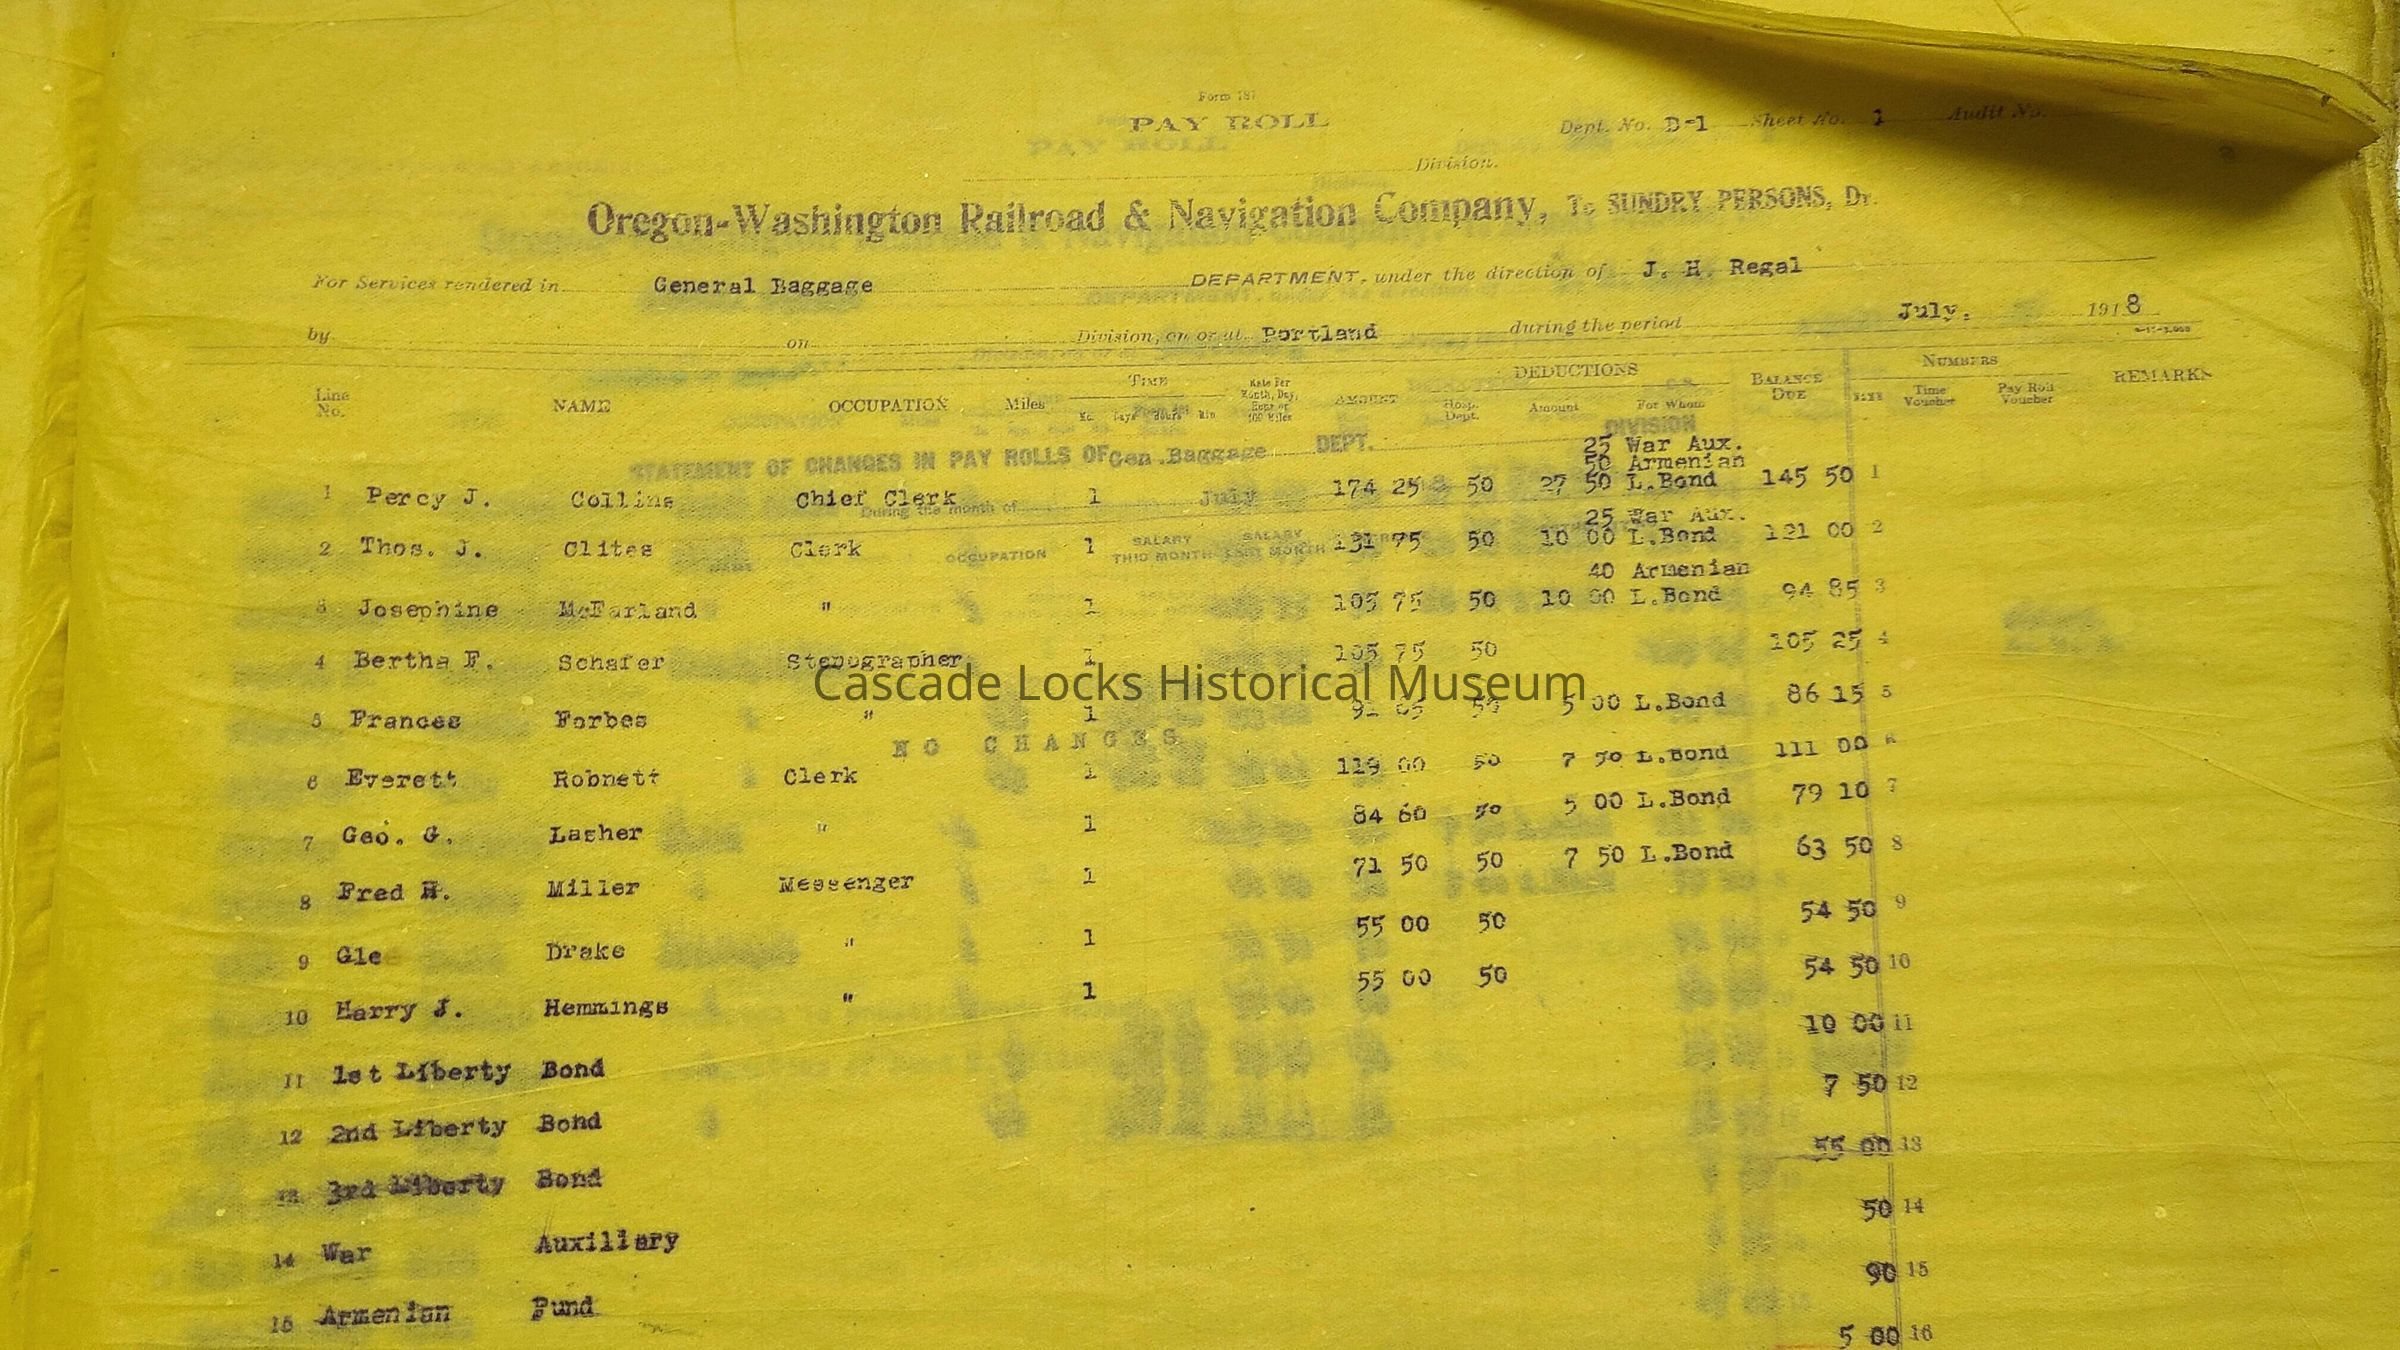 Form 787
PAY ROLL
Dept. No. D-1 Sheet No. 1 Audit No.
Division.
Oregon-Washington Railroad & Navigation Company, To SUNDRY PERSONS, Dr.
For Services rendered in General Baggage DEPARTMENT, under the direction of J. H. Regal
by on Division, on or at Portland during the period July, 1918
Line No. NAME OCCUPATION Miles TIME No. Days Hours Min. Rate Per Month, Day, Hour or 100 Miles AMOUNT DEDUCTIONS Hosp. Dept. Amount For Whom BALANCE DUE LINE NUMBERS Time Voucher Pay Roll Voucher REMARKS
DIVISION
STATEMENT OF CHANGES IN PAY ROLLS OF Gen. Baggage DEPT.
25 War Aux.
50 Armenian
1 Percy J. Collins Chief Clerk 1 174 25 50 27 50 L.Bond 145 50 1
During the month of July
25 War Aux.
2 Thos. J. Clites Clerk 1 131 75 50 10 00 L.Bond 121 00 2
OCCUPATION SALARY THIS MONTH SALARY LAST MONTH
40 Armenian
3 Josephine McFarland " 1 105 75 50 10 00 L.Bond 94 85 3
4 Bertha F. Schafer Stenographer 1 105 75 50 105 25 4
Cascade Locks Historical Museum
5 Frances Forbes " 1 91 65 50 5 00 L.Bond 86 15 5
NO CHANGES
6 Everett Robnett Clerk 1 119 00 50 7 50 L.Bond 111 00 6
7 Geo. G. Lasher " 1 84 60 50 5 00 L.Bond 79 10 7
8 Fred H. Miller Messenger 1 71 50 50 7 50 L.Bond 63 50 8
9 Gle Drake " 1 55 00 50 54 50 9
10 Harry J. Hemmings " 1 55 00 50 54 50 10
11 1st Liberty Bond 10 00 11
12 2nd Liberty Bond 7 50 12
13 3rd Liberty Bond 55 00 13
14 War Auxiliary 50 14
15 Armenian Fund 90 15
5 00 16